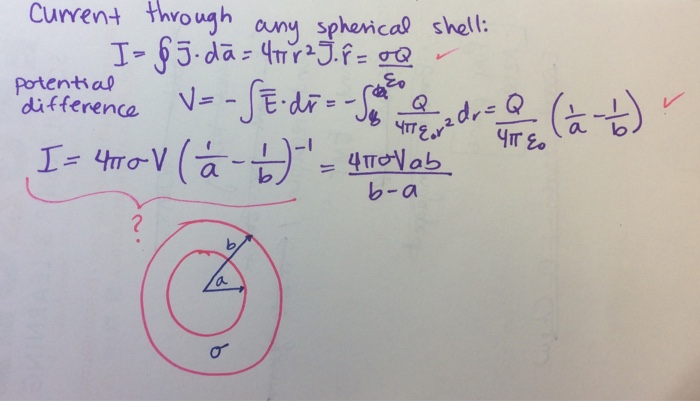 Current through any spherical shell:
I = ∮ J̄·dā = 4πr² J̄·r̂ = σQ/ε₀ ✓
potential difference V = -∫Ē·dr̄ = -∫_b^a Q/(4πε₀r²) dr = Q/(4πε₀) (1/a - 1/b) ✓
I = 4πσV (1/a - 1/b)⁻¹ = 4πσVab/(b-a)
?
b
a
σ